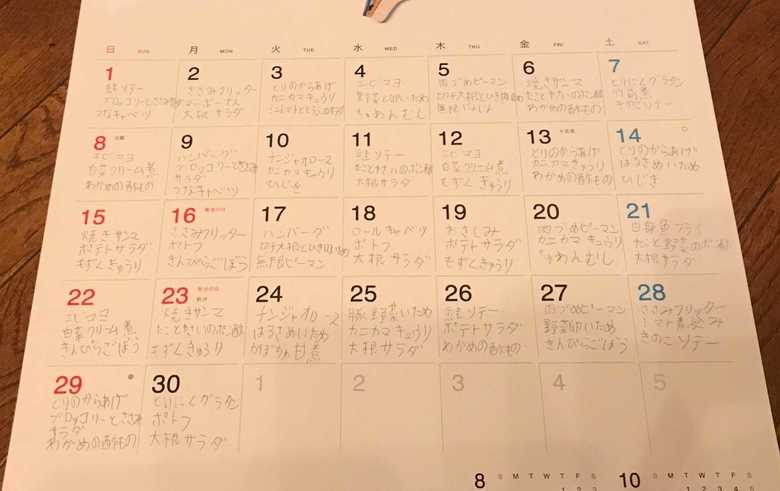 日 SUN 月 MON 火 TUE 水 WED 木 THU 金 FRI 土 SAT
1 2 3 4 5 6 7
鮭ソテー ささみフリッター とりのからあげ エビマヨ 肉づめピーマン 焼きサンマ とりにくグラタン
ブロッコリーとささみ マーボーなす カニカマきゅうり 野菜
つなキャベツ 大根サラダ ちゃわんむし わかめの酢もの ソテー
8 9 10 11 12 13 14
エビマヨ ハンバーグ チンジャオロース 鮭ソテー エビマヨ とりのからあげ とりのからあげ
白菜クリーム煮 ブロッコリーとささみ カニカマきゅうり 白菜クリーム煮 カニカマきゅうり はるさめいため
わかめの酢もの サラダ ひじき 大根サラダ もずくきゅうり わかめの酢もの ひじき
つなキャベツ
15 16 17 18 19 20 21
焼きサンマ ささみフリッター ハンバーグ ロールキャベツ おさしみ 肉づめピーマン フライ
ポテトサラダ ポトフ ポトフ ポテトサラダ カニカマきゅうり
もずくきゅうり きんぴらごぼう 無限ピーマン 大根サラダ もずくきゅうり ちゃわんむし 大根サラダ
22 23 24 25 26 27 28
エビマヨ 焼きサンマ チンジャオロース 豚野菜いため 鮭ソテー 肉づめピーマン ささみフリッター
白菜クリーム煮 はるさめいため カニカマキュウリ ポテトサラダ 野菜いため トマト煮込み
きんぴらごぼう もずくきゅうり かぼちゃ甘煮 大根サラダ わかめの酢もの きんぴらごぼう きのこソテー
29 30 1 2 3 4 5
とりのからあげ とりにくグラタン
ブロッコリーとささみ ポトフ
サラダ 大根サラダ
わかめの酢もの
8 S M T W T F S 10 S M T W T F S
1 2 3 1 2 3 4 5